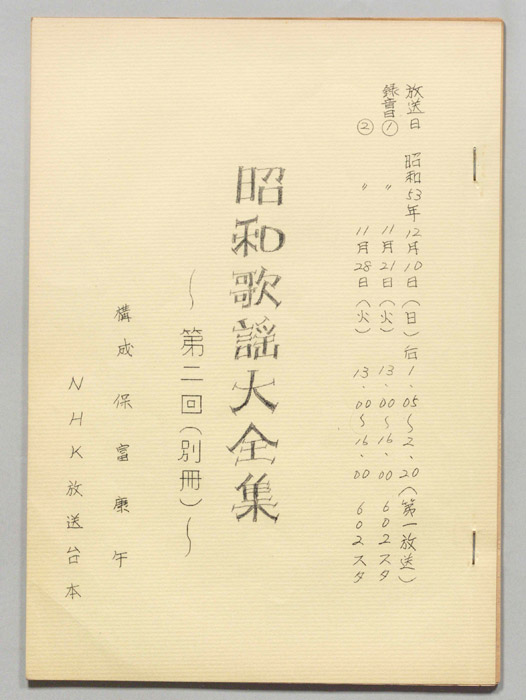 放送日 昭和53年12月10日(日)后1.05〜2.20(第一放送)
録音① 〃 11月21日(火) 13.00〜16.00 602スタ
② 〃 11月28日(火) 13.00〜16.00 602スタ
昭和歌謡大全集
〜第二回(別冊)〜
構成 保富康午
NHK放送台本